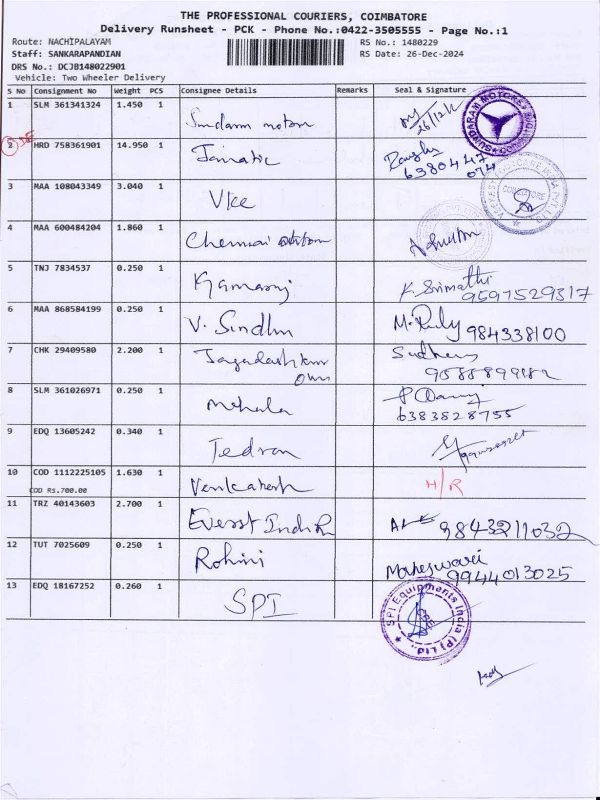 THE PROFESSIONAL COURIERS, COIMBATORE
Delivery Runsheet - PCK - Phone No.:0422-3505555 - Page No.:1
Route: NACHIPALAYAM
RS No.: 1480229
Staff: SANKARAPANDIAN
RS Date: 26-Dec-2024
DRS No.: DCJB148022901
Vehicle: Two Wheeler Delivery
S No Consignment No Weight PCS Consignee Details Remarks Seal & Signature
1 SLM 361341324 1.450 1 Sundaram motors 26/12/24
SUNDARAM MOTORS
2 HRD 758361901 14.950 1
6380447
074
COIMBATORE
3 MAA 108043349 3.040 1 Vkc
4 MAA 600484204 1.860 1 Chennai
5 TNJ 7834537 0.250 1 K. Srimathi
9597529317
6 MAA 868584199 0.250 1 V. Sindhu 984338100
7 CHK 29409580 2.200 1
8 SLM 361026971 0.250 1 Mehala
6383828755
9 EDQ 13605242 0.340 1 Tedron
10 COD 1112225105 1.630 1 Venkatesh H/R
COD Rs.700.00
11 TRZ 40143603 2.700 1 Everst 9843211032
12 TUT 7025609 0.250 1 Rohini Maheswari
9944013025
13 EDQ 18167252 0.260 1 SPI
SPI Equipments India (P) Ltd